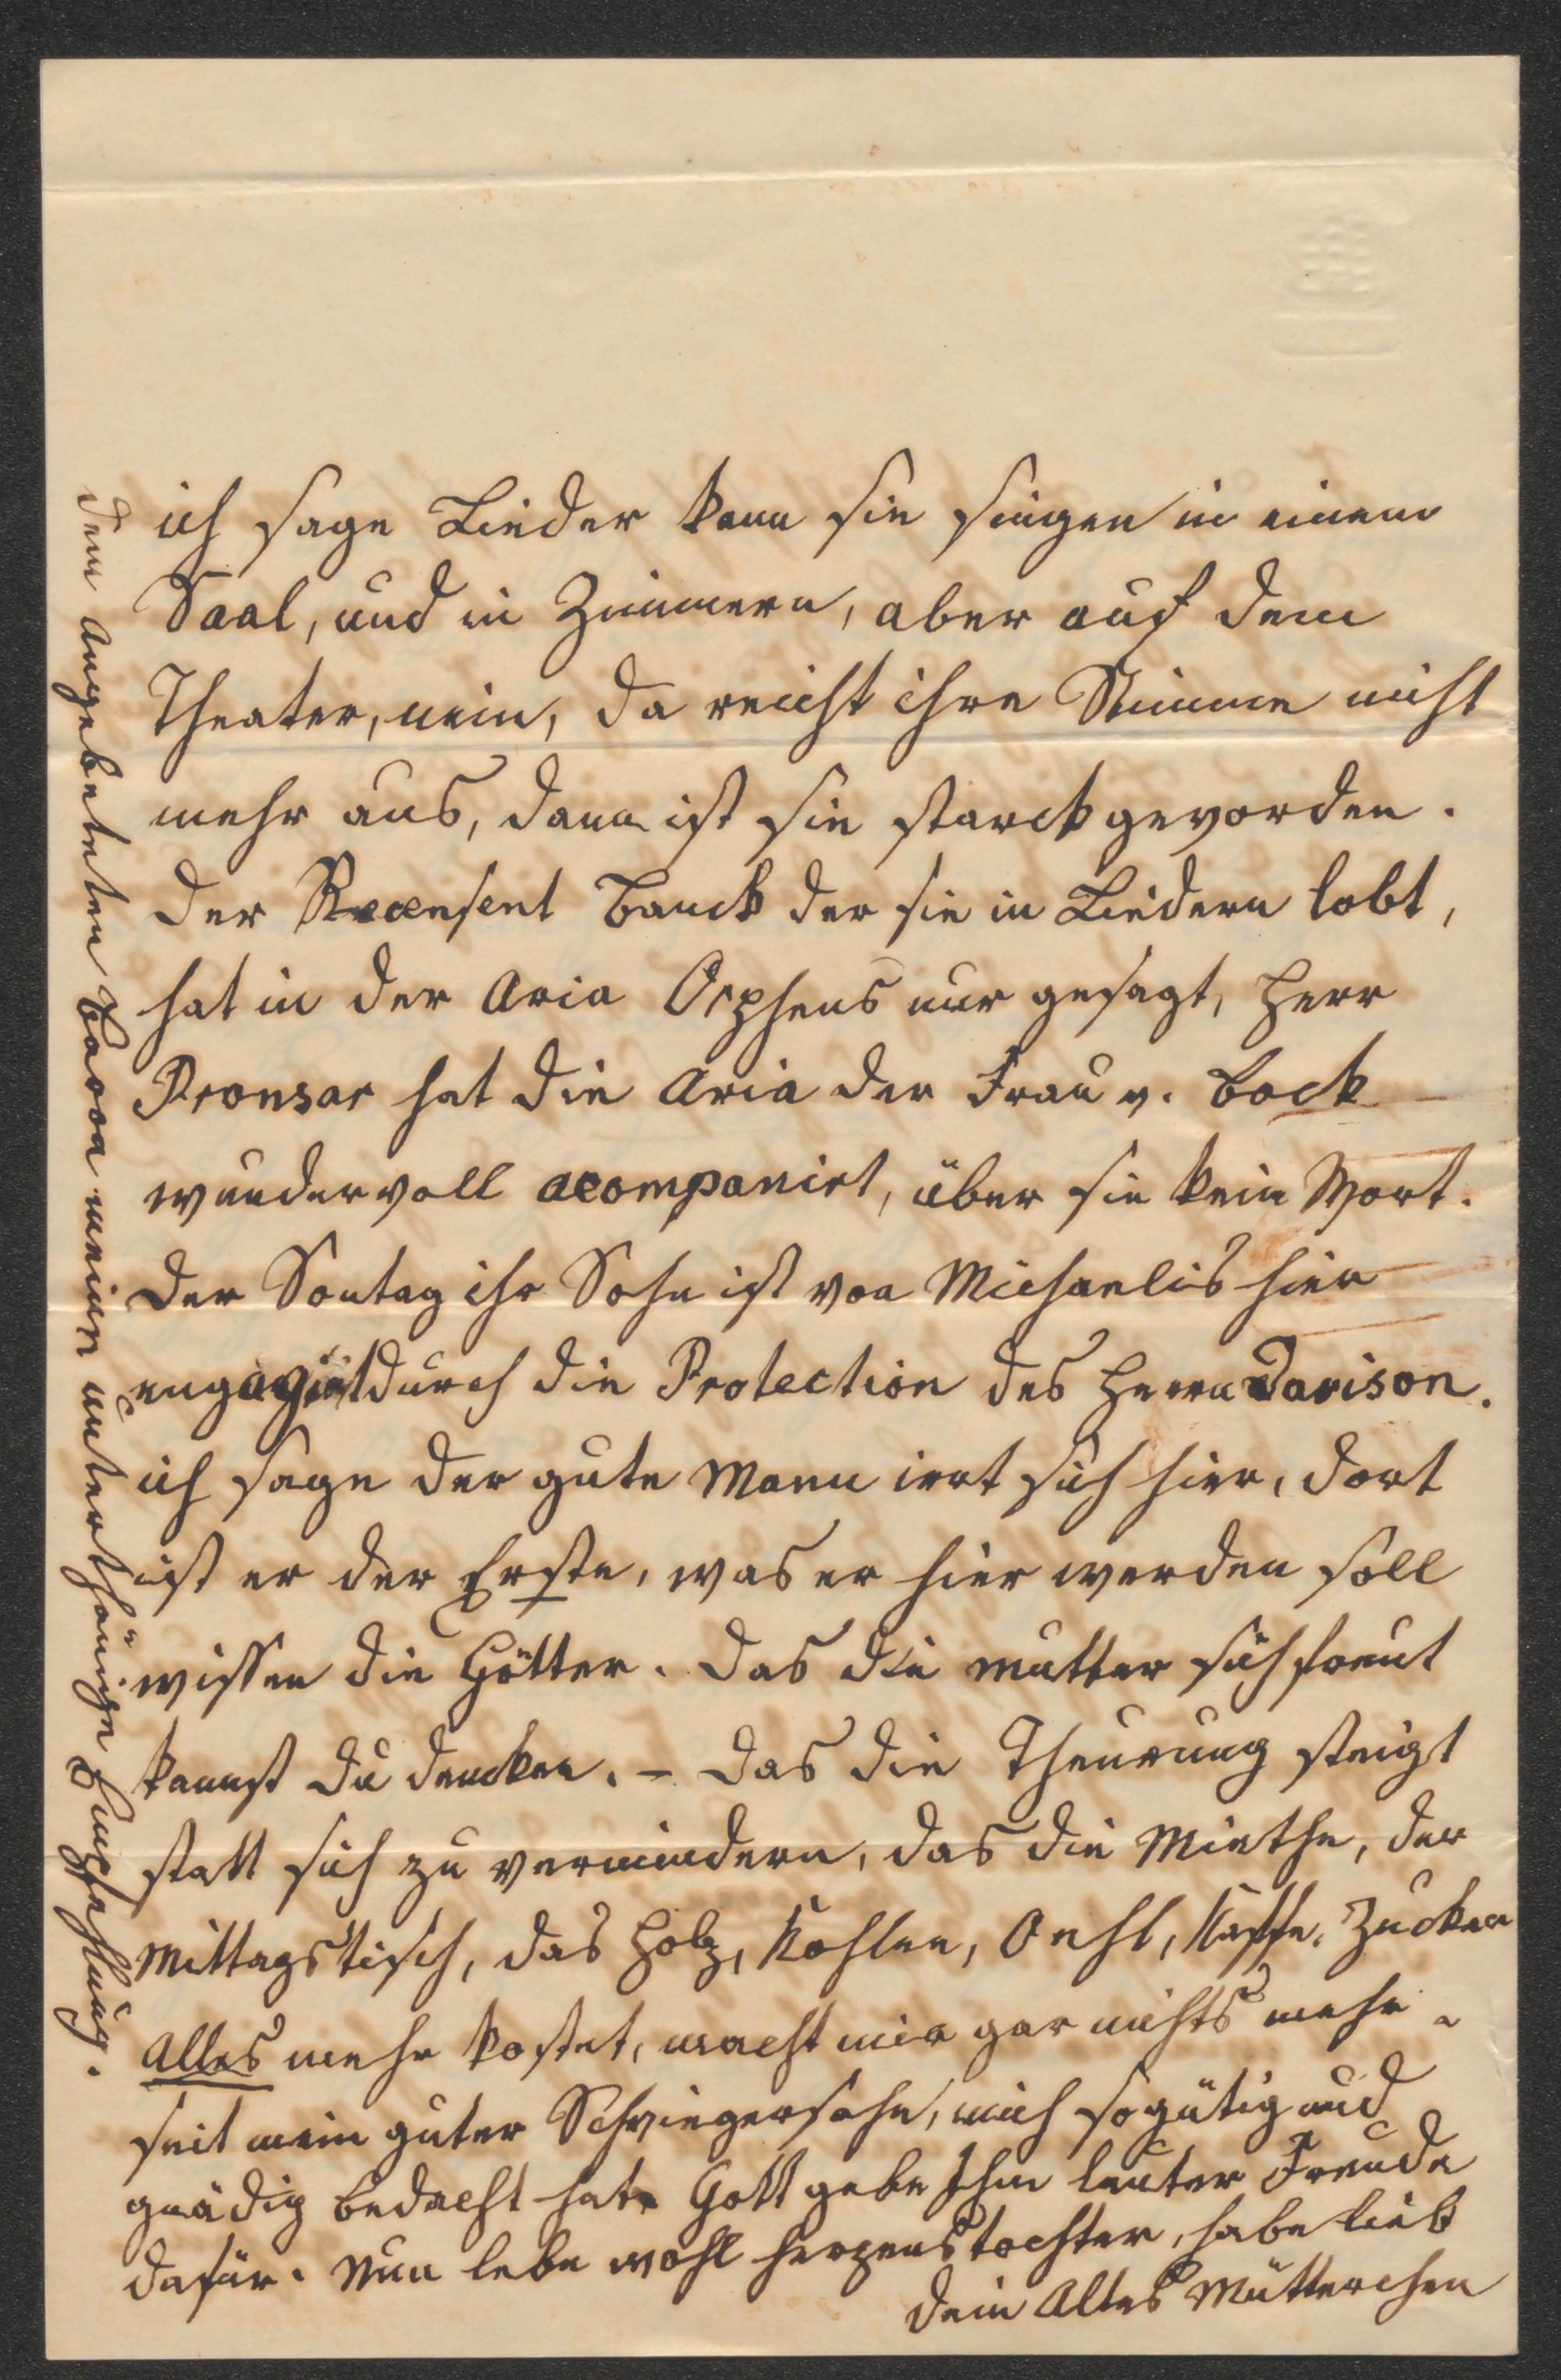 ich sage Lieder kann sie singen in einem
Saal, und in Zimmern, aber auf dem
Theater, nein, da reicht ihre Stimme nicht
mehr aus, dann ist sie starck geworden.
Der Recensent Banck der sie in Liedern lobt,
hat in der Aria Orpheus nur gesagt, Herr
Pronsar hat die Aria der Frau v. Bock
wundervoll acompanirt, über sie kein Wort.
Der Sontag ihr Sohn ist von Michaelis hier
engagirt durch die Protection des Herrn Davison.
ich sage der gute Mann irrt sich hier, dort
ist er der Erste, was er hier werden soll
wissen die Götter. Das die Mutter sich freut
kannst Du dencken. – Das die Theurung steigt
statt sich zu vermindern, das die Miethe, der
Mittagstisch, das Holz, Kohlen, Oehl, Kaffe, Zucker
Alles mehr kostet, macht mir gar nichts mehr.
seit mein guter Schwiegersohn, mich so gütig und
gnädig bedacht hat. Gott gebe Ihm lauter Freude
dafür. Nun lebe wohl Herzenstochter, habe lieb
Dein Altes Mütterchen
Dem Angebeteten Baron meine unterthänige Empfehlung.